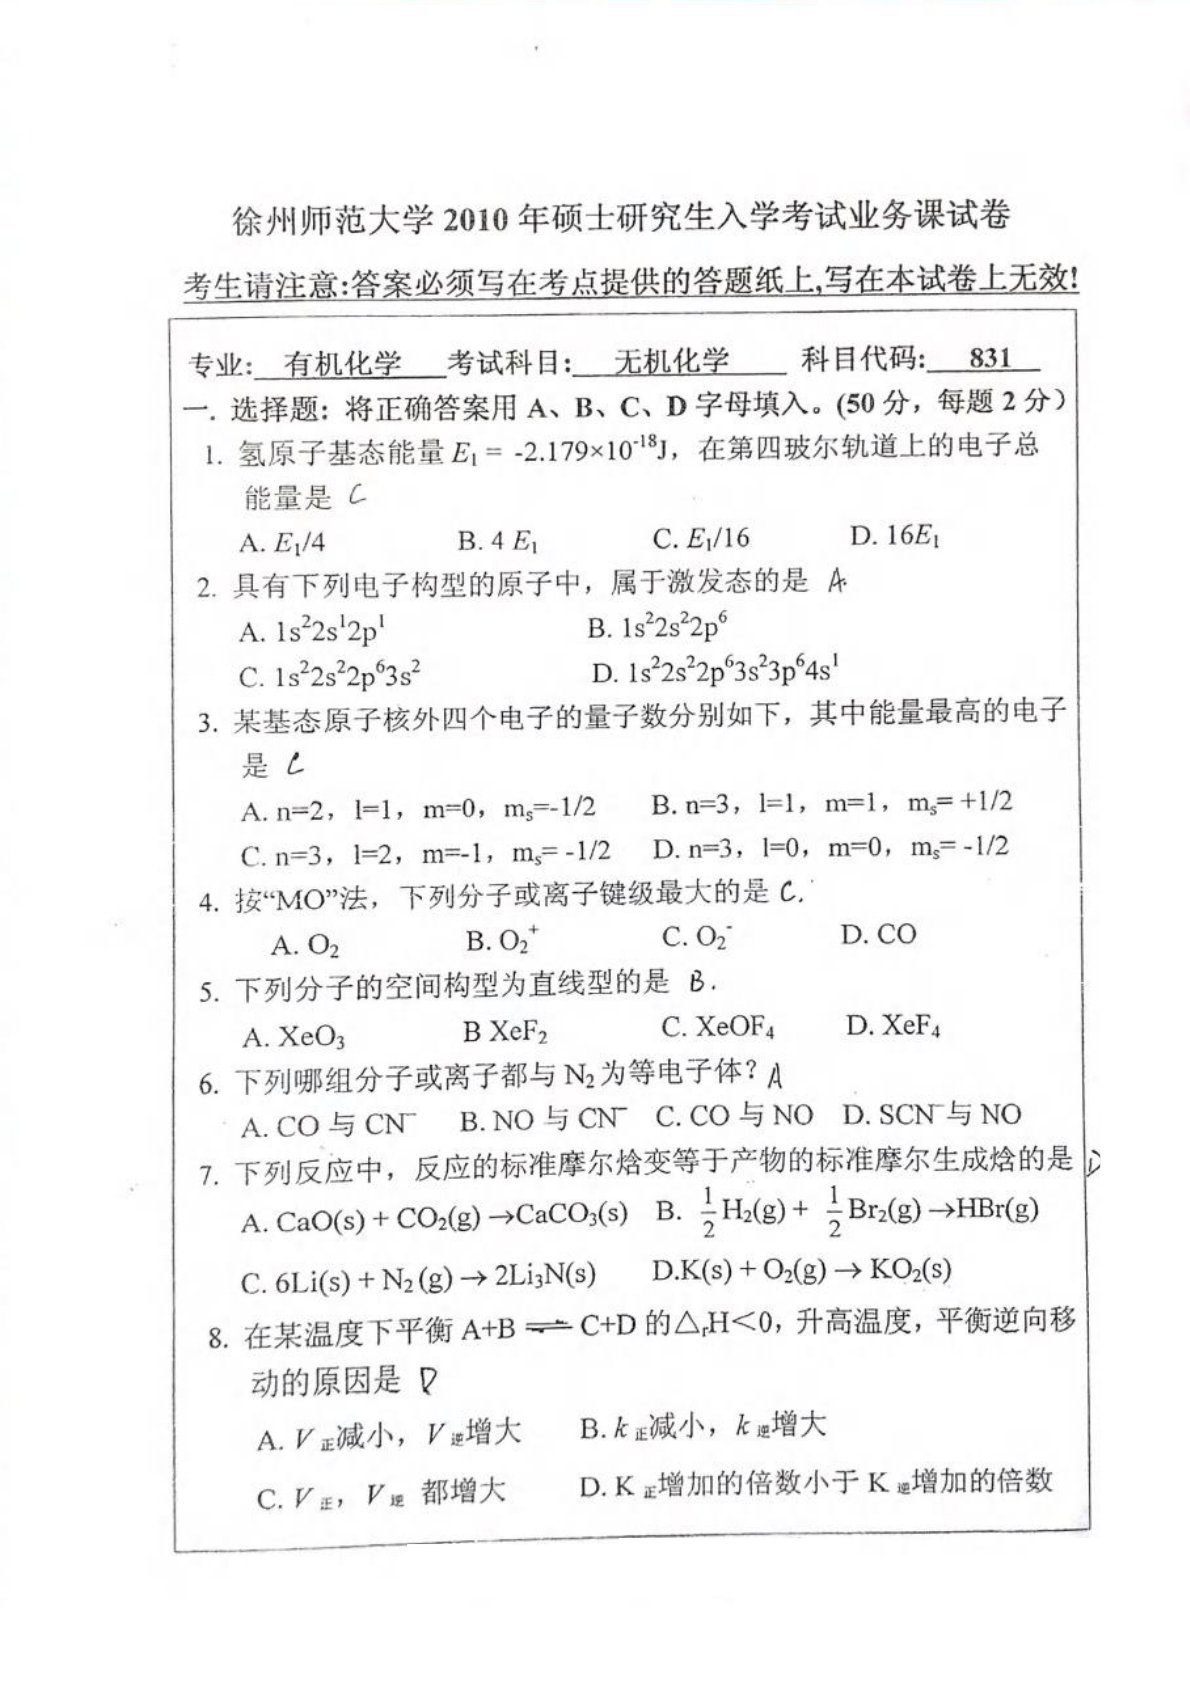 徐州师范大学 2010 年硕士研究生入学考试业务课试卷
考生请注意:答案必须写在考点提供的答题纸上,写在本试卷上无效!
专业: 有机化学 考试科目: 无机化学 科目代码: 831
一. 选择题: 将正确答案用 A、B、C、D 字母填入。(50 分, 每题 2 分)
1. 氢原子基态能量 E₁ = -2.179×10⁻¹⁸J, 在第四玻尔轨道上的电子总
能量是 C
A. E₁/4 B. 4 E₁ C. E₁/16 D. 16E₁
2. 具有下列电子构型的原子中, 属于激发态的是 A
A. 1s²2s¹2p¹ B. 1s²2s²2p⁶
C. 1s²2s²2p⁶3s² D. 1s²2s²2p⁶3s²3p⁶4s¹
3. 某基态原子核外四个电子的量子数分别如下, 其中能量最高的电子
是 C
A. n=2, l=1, m=0, mₛ=-1/2 B. n=3, l=1, m=1, mₛ= +1/2
C. n=3, l=2, m=-1, mₛ= -1/2 D. n=3, l=0, m=0, mₛ= -1/2
4. 按“MO”法, 下列分子或离子键级最大的是 C.
A. O₂ B. O₂⁺ C. O₂⁻ D. CO
5. 下列分子的空间构型为直线型的是 B.
A. XeO₃ B XeF₂ C. XeOF₄ D. XeF₄
6. 下列哪组分子或离子都与 N₂ 为等电子体? A
A. CO 与 CN⁻ B. NO 与 CN⁻ C. CO 与 NO D. SCN⁻与 NO
7. 下列反应中, 反应的标准摩尔焓变等于产物的标准摩尔生成焓的是 D
A. CaO(s) + CO₂(g) →CaCO₃(s) B. 1/2 H₂(g) + 1/2 Br₂(g) →HBr(g)
C. 6Li(s) + N₂ (g) → 2Li₃N(s) D.K(s) + O₂(g) → KO₂(s)
8. 在某温度下平衡 A+B ⇌ C+D 的△ᵣH<0, 升高温度, 平衡逆向移
动的原因是 D
A. V 正减小, V 逆增大 B. k 正减小, k 逆增大
C. V 正, V 逆 都增大 D. K 正增加的倍数小于 K 逆增加的倍数